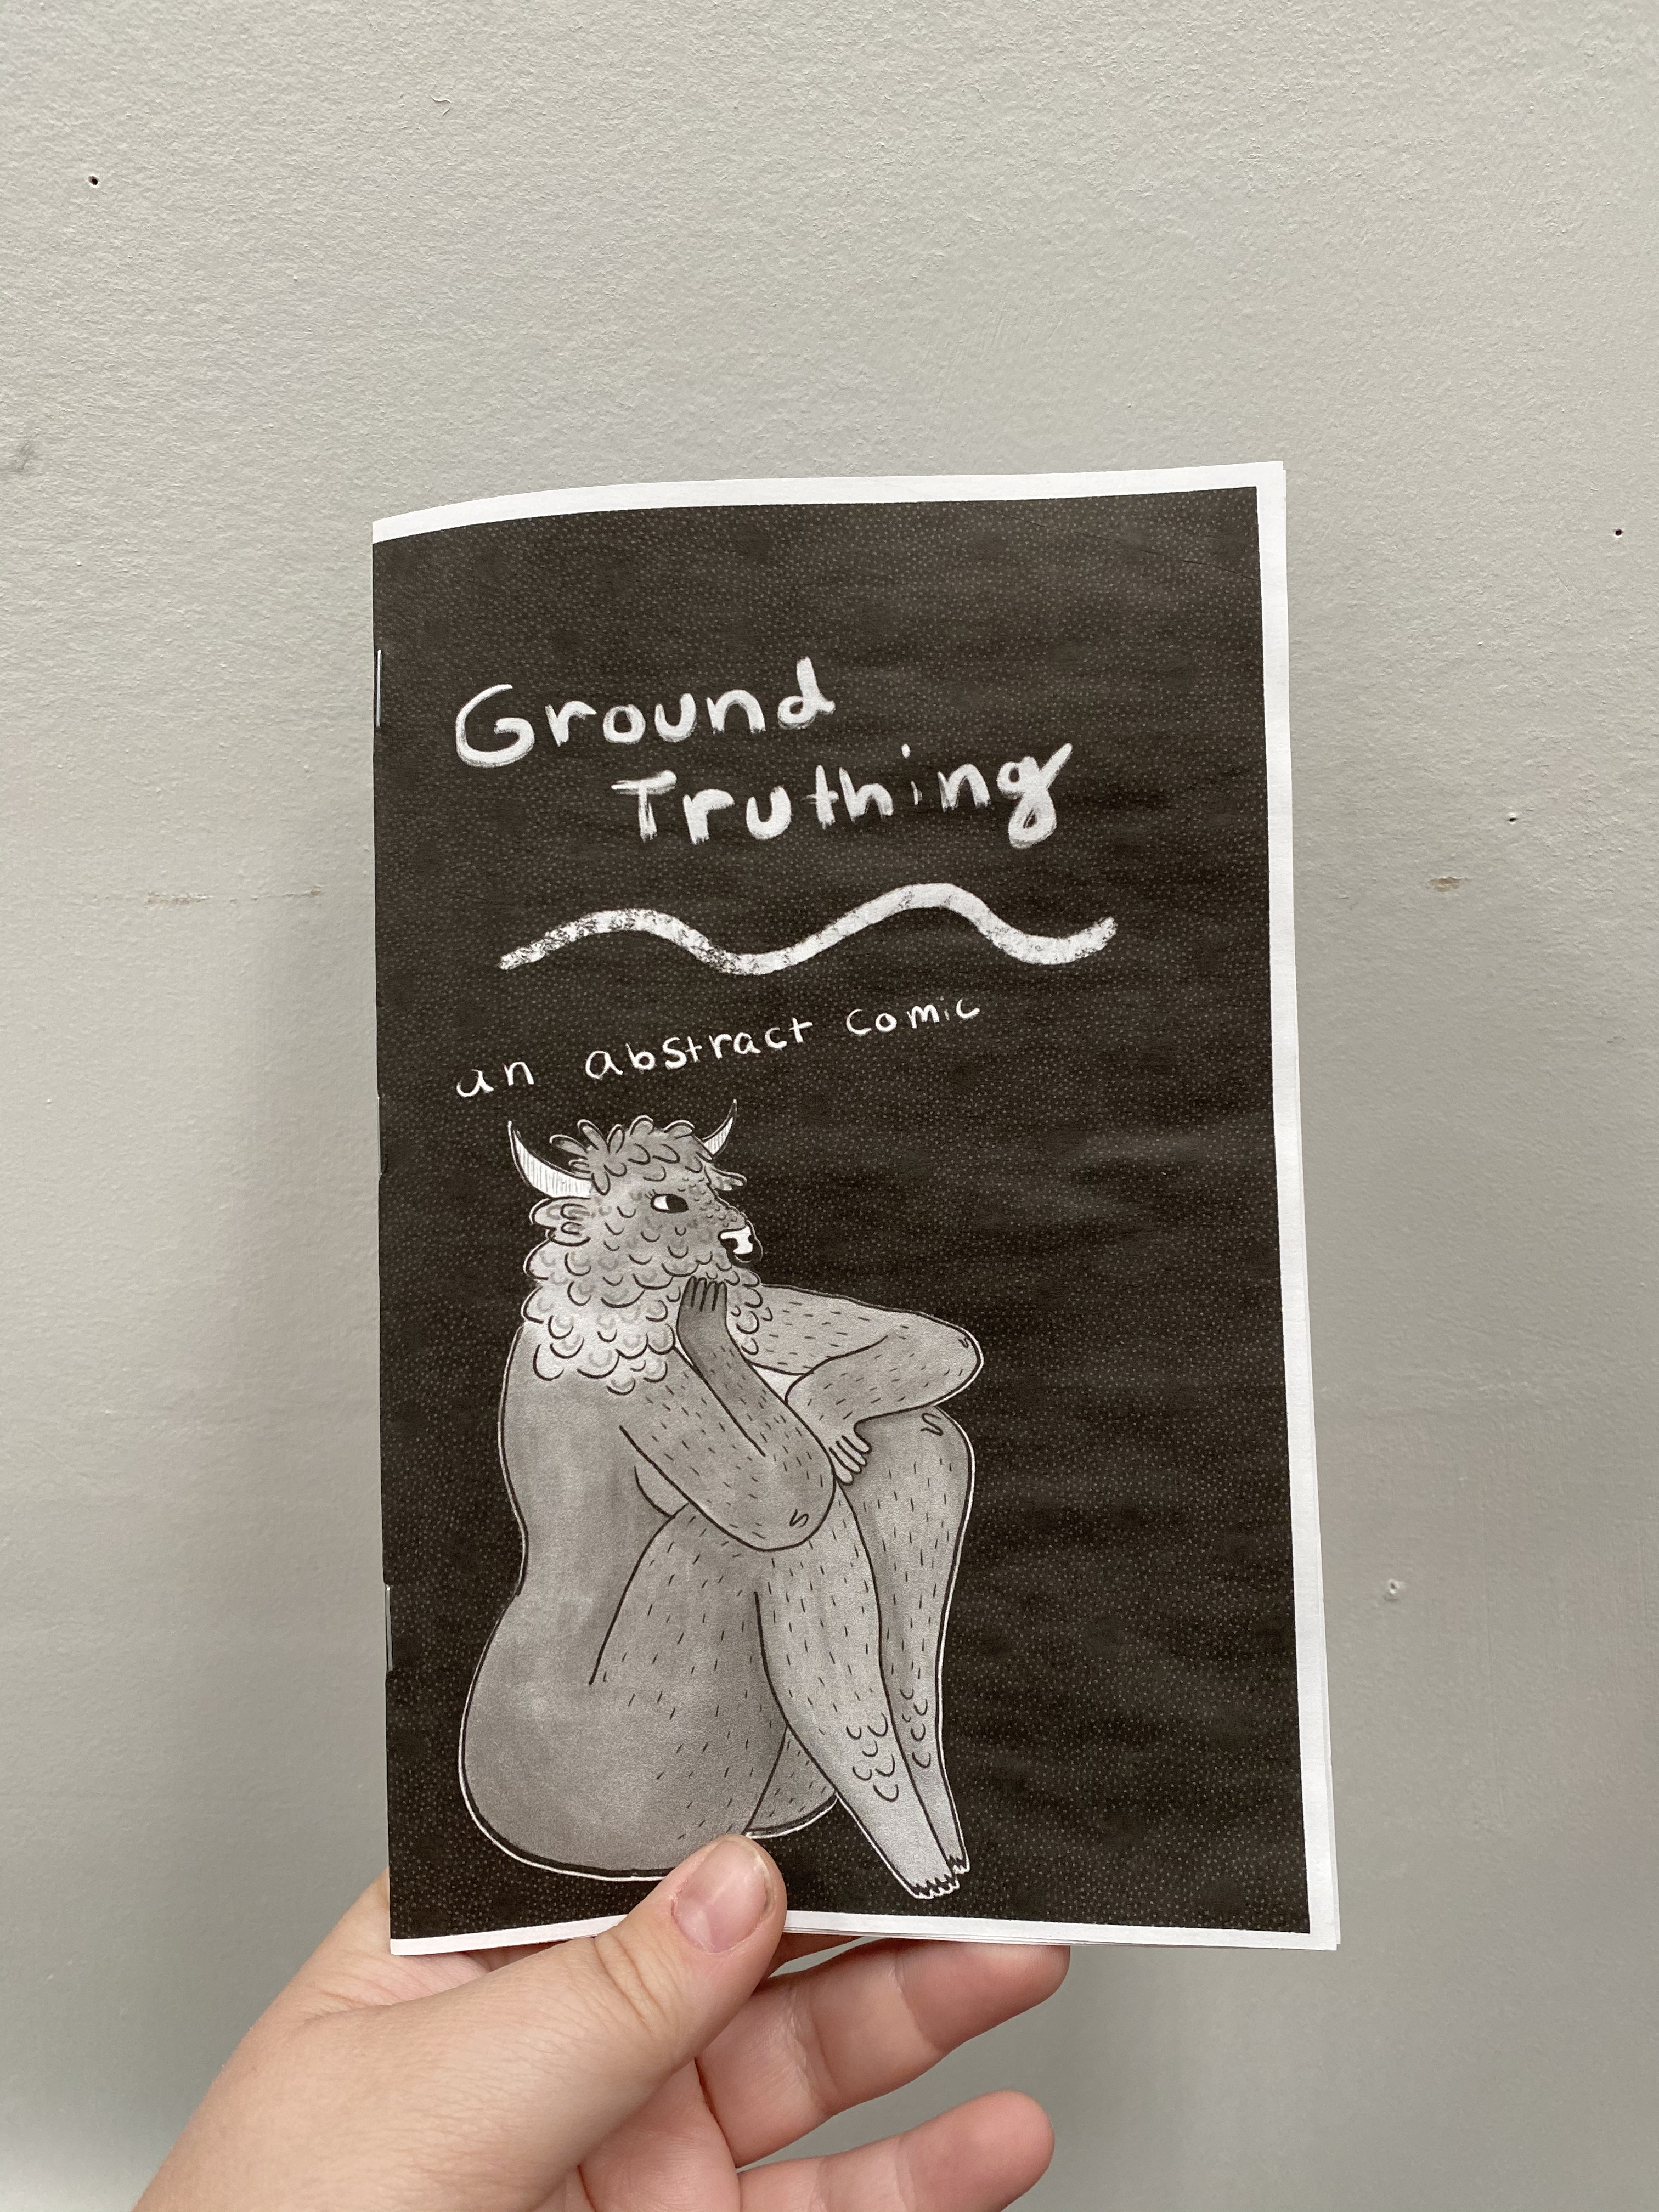 Ground
Truthing
an abstract comic